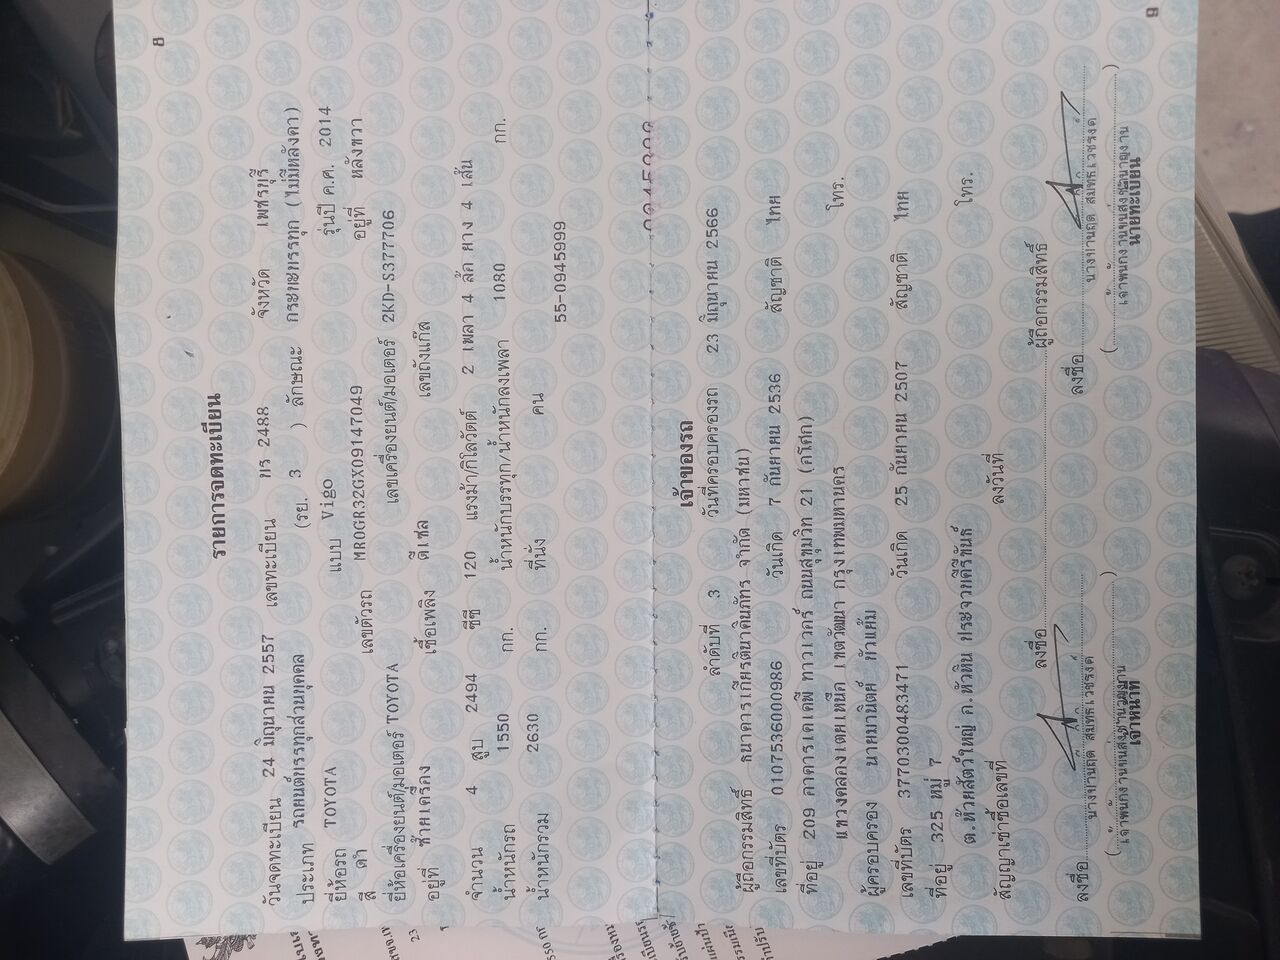 8
รายการจดทะเบียน
วันจดทะเบียน 24 มิถุนายน 2557 เลขทะเบียน 2488 จังหวัด เพชรบุรี
ประเภท รถยนต์บรรทุกส่วนบุคคล (รย. 3 ) ลักษณะ กระบะบรรทุก (ไม่มีหลังคา)
ยี่ห้อรถ TOYOTA แบบ Vigo รุ่นปี ค.ศ. 2014
สี ดำ เลขตัวรถ MR0GR32GX09147049 อยู่ที่ หลังขวา
ยี่ห้อเครื่องยนต์/มอเตอร์ TOYOTA เลขเครื่องยนต์/มอเตอร์ 2KD-S377706
อยู่ที่ ซ้ายเครื่อง เชื้อเพลิง ดีเซล เลขถังแก๊ส
จำนวน 4 สูบ 2494 ซีซี 120 แรงม้า/กิโลวัตต์ 2 เพลา 4 ล้อ ยาง 4 เส้น
น้ำหนักรถ 1550 กก. น้ำหนักบรรทุก/น้ำหนักลงเพลา 1080 กก.
น้ำหนักรวม 2630 กก. ที่นั่ง คน
55-0945999
เจ้าของรถ
ลำดับที่ 3 วันที่ครอบครองรถ 23 มิถุนายน 2566
ผู้ถือกรรมสิทธิ์ ธนาคารเกียรตินาคินภัทร จำกัด (มหาชน)
เลขที่บัตร 0107536000986 วันเกิด 7 กันยายน 2536 สัญชาติ ไทย
ที่อยู่ 209 อาคารเคเคพี ทาวเวอร์ ถนนสุขุมวิท 21 (อโศก)
แขวงคลองเตยเหนือ เขตวัฒนา กรุงเทพมหานคร โทร.
ผู้ครอบครอง นายมานิตย์
เลขที่บัตร 3770300483471 วันเกิด 25 กันยายน 2507 สัญชาติ ไทย
ที่อยู่ 325 หมู่ 7
ต.ห้วยสัตว์ใหญ่ อ.หัวหิน ประจวบคีรีขันธ์ โทร.
สัญญาเช่าซื้อเลขที่ ลงวันที่
ลงชื่อ ผู้ถือกรรมสิทธิ์
ลงชื่อ ลงชื่อ
เจ้าพนักงานขนส่งชำนาญงาน เจ้าพนักงานขนส่งชำนาญงาน
เจ้าหน้าที่ นายทะเบียน
9